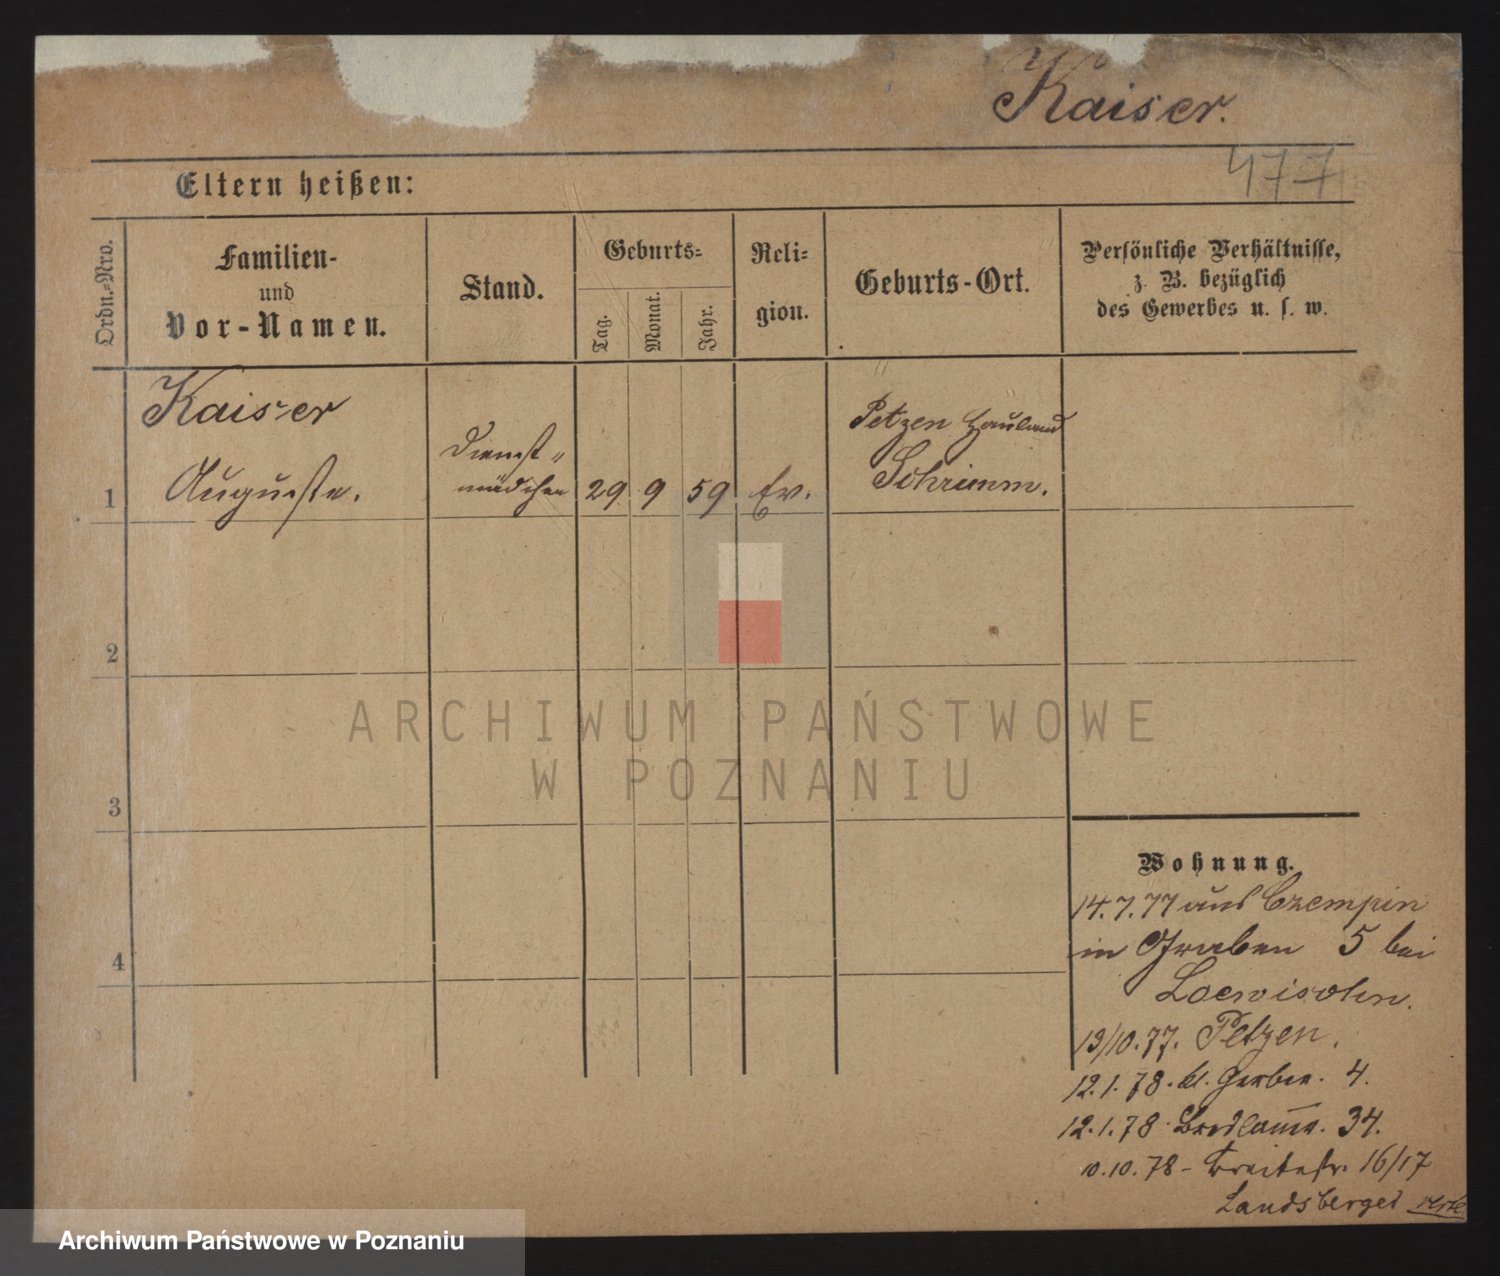 Kaiser.
477
Eltern heißen:
Ordn.-Nro.
Familien-
und
Vor-Namen.
Stand.
Geburts-
Tag.
Monat.
Jahr.
Reli-
gion.
Geburts-Ort.
Persönliche Verhältnisse,
z. B. bezüglich
des Gewerbes u. s. w.
Kaiser
Auguste.
Dienst-
mädchen
29 9 59 Ev.
Petzen Hauland
Schrimm.
1
2
3
4
ARCHIWUM PAŃSTWOWE
W POZNANIU
Wohnung.
14.7.77 aus Czempin
in Graben 5 bei
Loewisohn.
13/10.77. Petzen.
12.1.78. kl. Gerber. 4.
12.1.78 34.
10.10.78 - Breitestr. 16/17
Landsberger
Archiwum Państwowe w Poznaniu